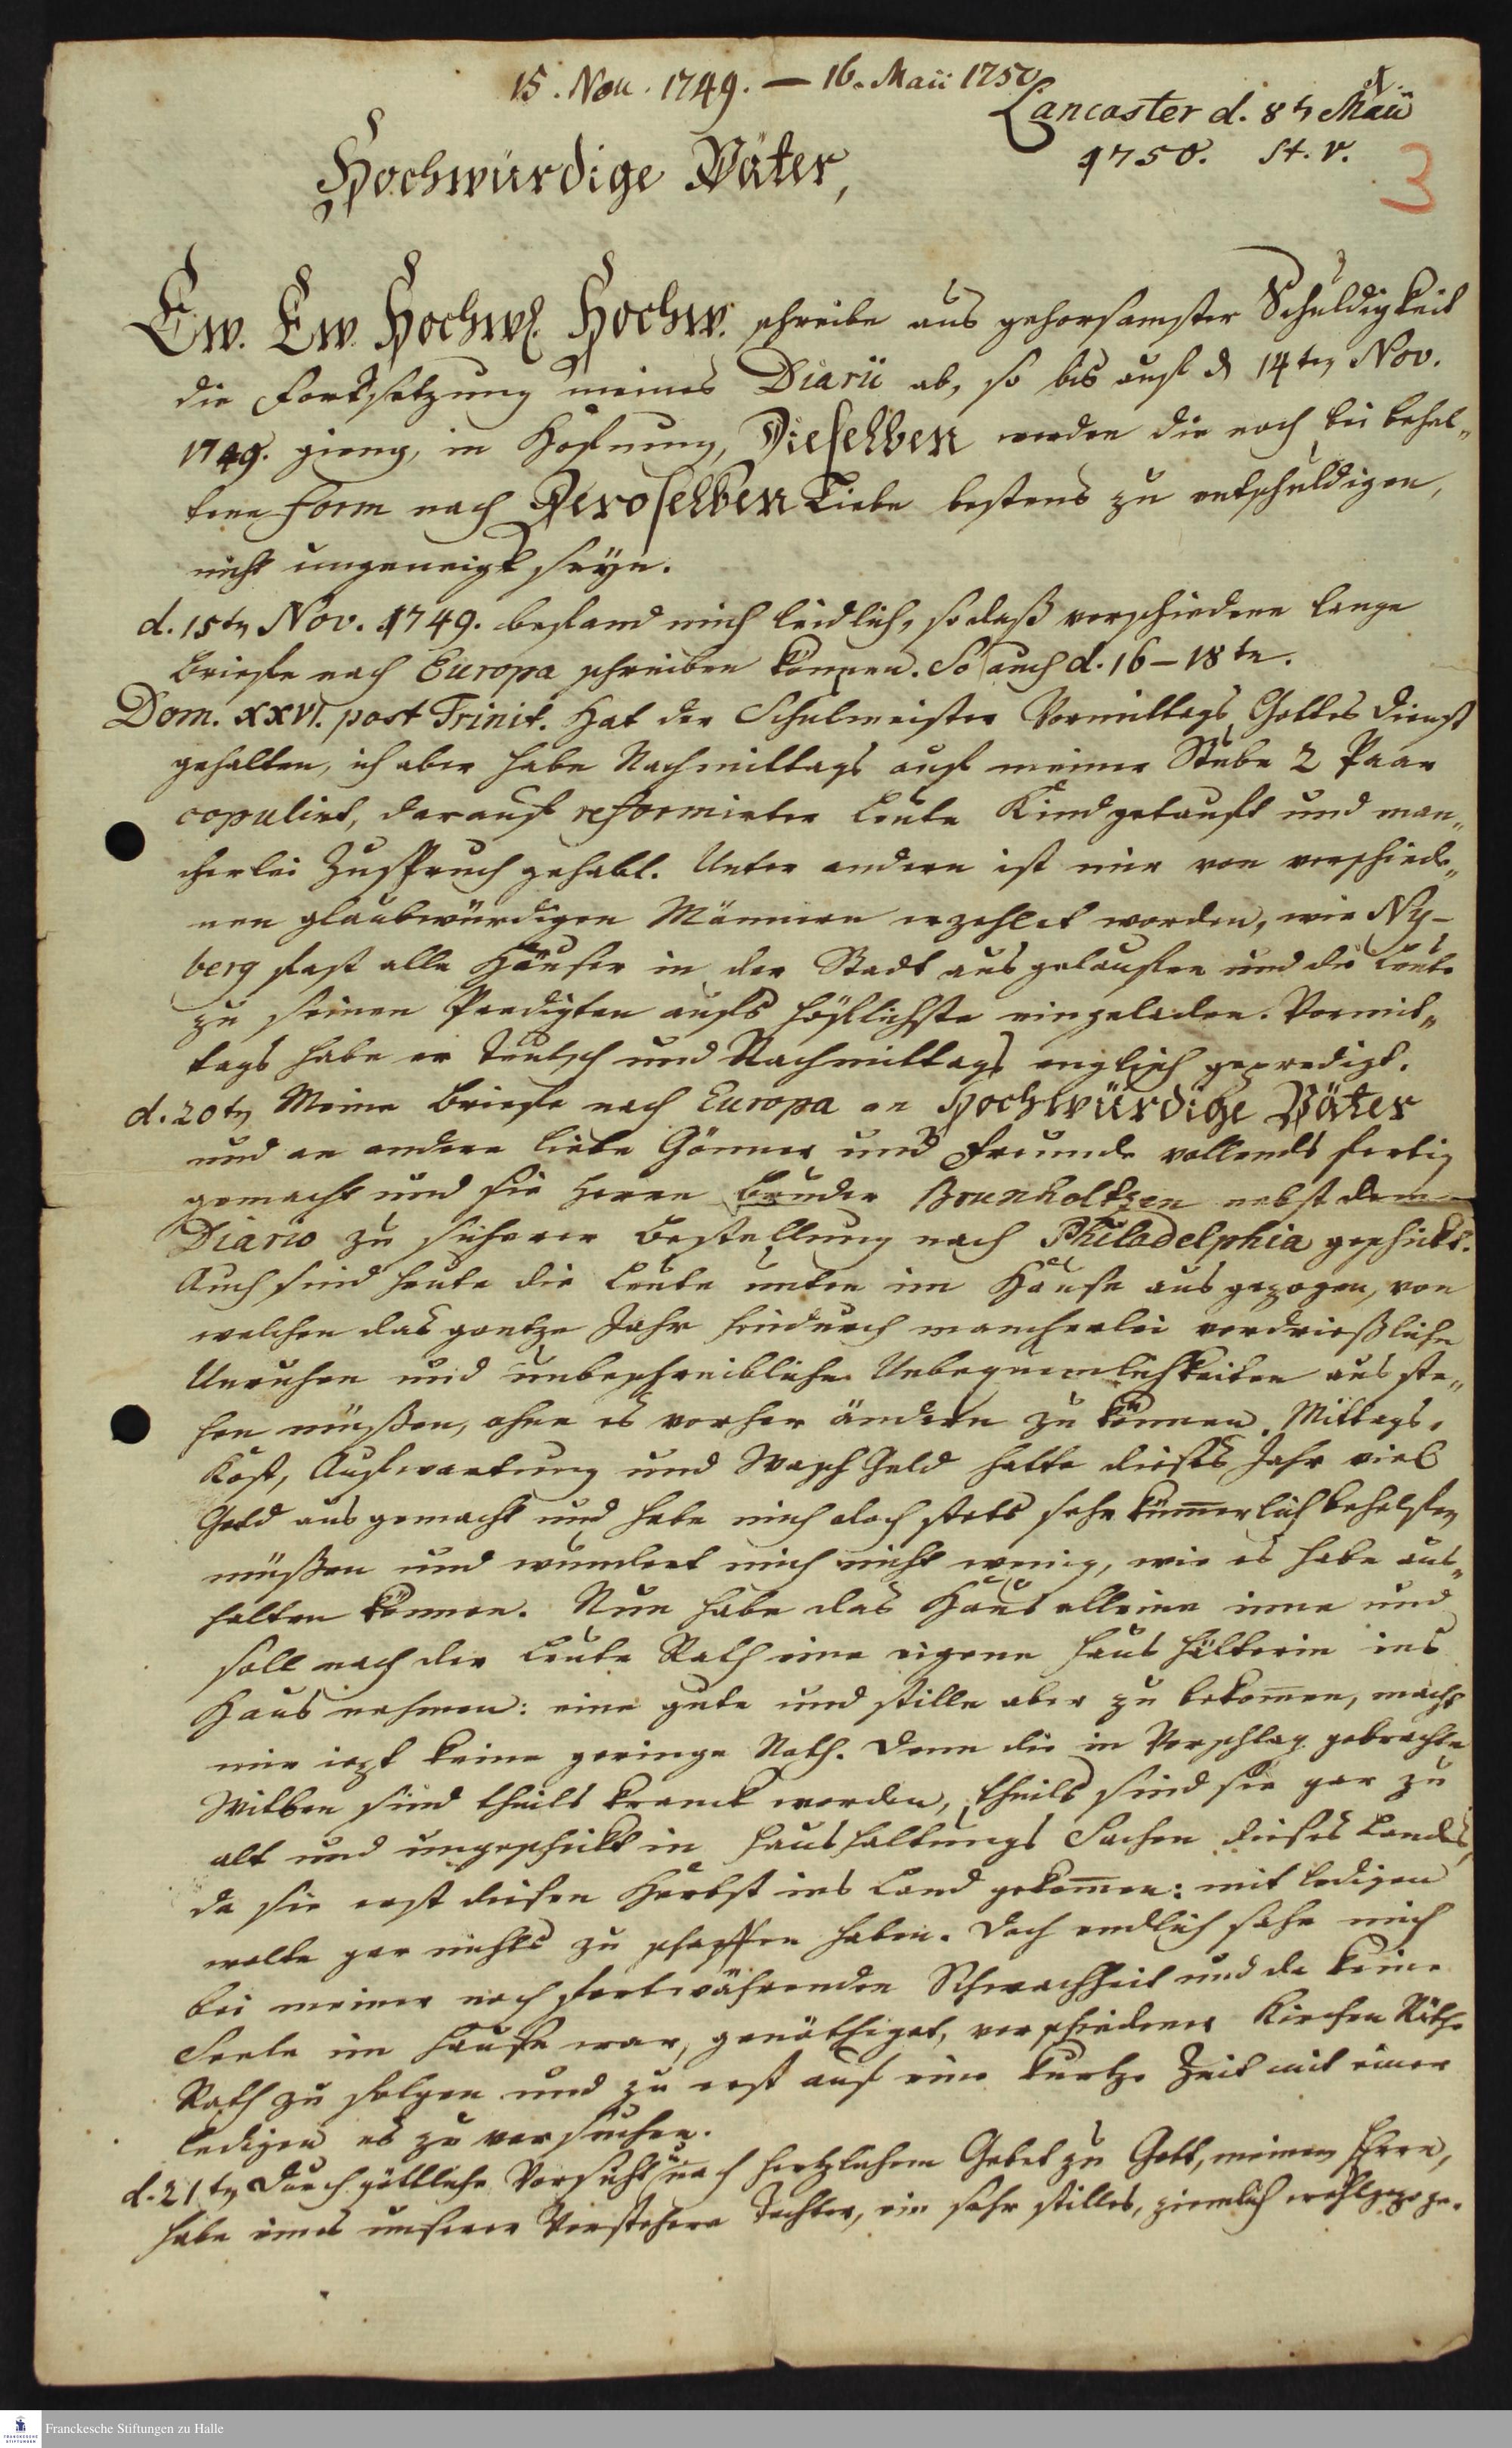 15. Nov. 1749. — 16. Maii 1750
Lancaster d. 8t Maii
1750. St. v.
3
Hochwürdige Väter,
Ew. Ew. Hochw. Hochw. schreibe aus gehorsamster Schuldigkeit
die Fortsetzung meines Diarii ab, so bis auf d 14ten Nov.
1749. gieng, in Hofnung, Dieselben werden die noch bei behal„
tene Form nach Deroselben Liebe bestens zu entschuldigen,
nicht ungeneigt seyn.
d. 15ten Nov. 1749. befand mich leidlich, so daß verschiedene lange
Briefe nach Europa schreiben können. So auch d. 16–18te.
Dom. XXVI. post Trinit. Hat der Schulmeister Vormittags Gottes dienst
gehalten, ich aber habe Nachmittags auf meiner Stube 2 Paar
copulirt, darauf reformirter Leute Kind getauft und man„
cherlei Zuspruch gehabt. Unter andern ist mir von verschiede„
nen glaubwürdigen Männern erzehlet worden, wie Ny-
berg fast alle Häuser in der Stadt ausgelaufen und die Leute
zu seinen Predigten aufs höflichste eingeladen. Vormit„
tags habe er teutsch und Nachmittags englisch gepredigt.
d. 20ten Meine Briefe nach Europa an Hochwürdige Väter
und an andere liebe Gönner und Freunde vollends fertig
gemacht und sie Herrn Bruder Brunholtzen nebst dem
Diario zu sicherer Bestellung nach Philadelphia geschickt.
Auch sind heute die Leute unten im Hause ausgezogen, von
welchen das gantze Jahr hindurch mancherlei verdrießliche
Unruhen und unbeschreibliche Unbequemlichkeiten ausste„
hen müßen, ohne es vorher ändern zu können. Mittags-
Kost, Aufwartung und Wasch Geld hatte dieses Jahr viel
Geld ausgemacht und habe mich doch stets sehr kümerlich behelfen
müßen und wundert mich nicht wenig, wie es habe aus„
halten können. Nun habe das Haus alleine inne und
soll nach der Leute Rath eine eigene Haus hälterin ins
Haus nehmen: eine gute und stille aber zu bekomen, macht
mir iezt keine geringe Noth. Denn die in Vorschlag gebrachte
Witben sind theils kranck worden, theils sind sie gar zu
alt und ungeschickt in Haushaltungs Sachen dieses Landes,
da sie erst diesen Herbst ins Land gekomen: mit ledigen
wolte gar nichts zu schaffen haben. Doch endlich sahe mich
bei meiner noch fortwährenden Schwachheit und da keine
Seele im Hause war, genöthiget, verschiedener Kirchen Räthe
Rath zu folgen und zu erst auf eine kurtze Zeit mit einer
ledigen es zu versuchen.
d. 21ten Durch göttliche Vorsicht nach hertzlichem Gebet zu Gott, meinem Herrn,
habe eines unserer Vorstehere Tochter, ein sehr stilles, ziemlich wohlgezoge-
Franckesche Stiftungen zu Halle